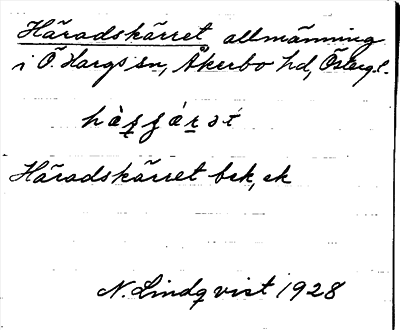 Häradskärret allmänning
i Ö. Hargs sn, Åkerbo hd, Östergl.
Häradskärret bek, ek
N. Lindqvist 1928